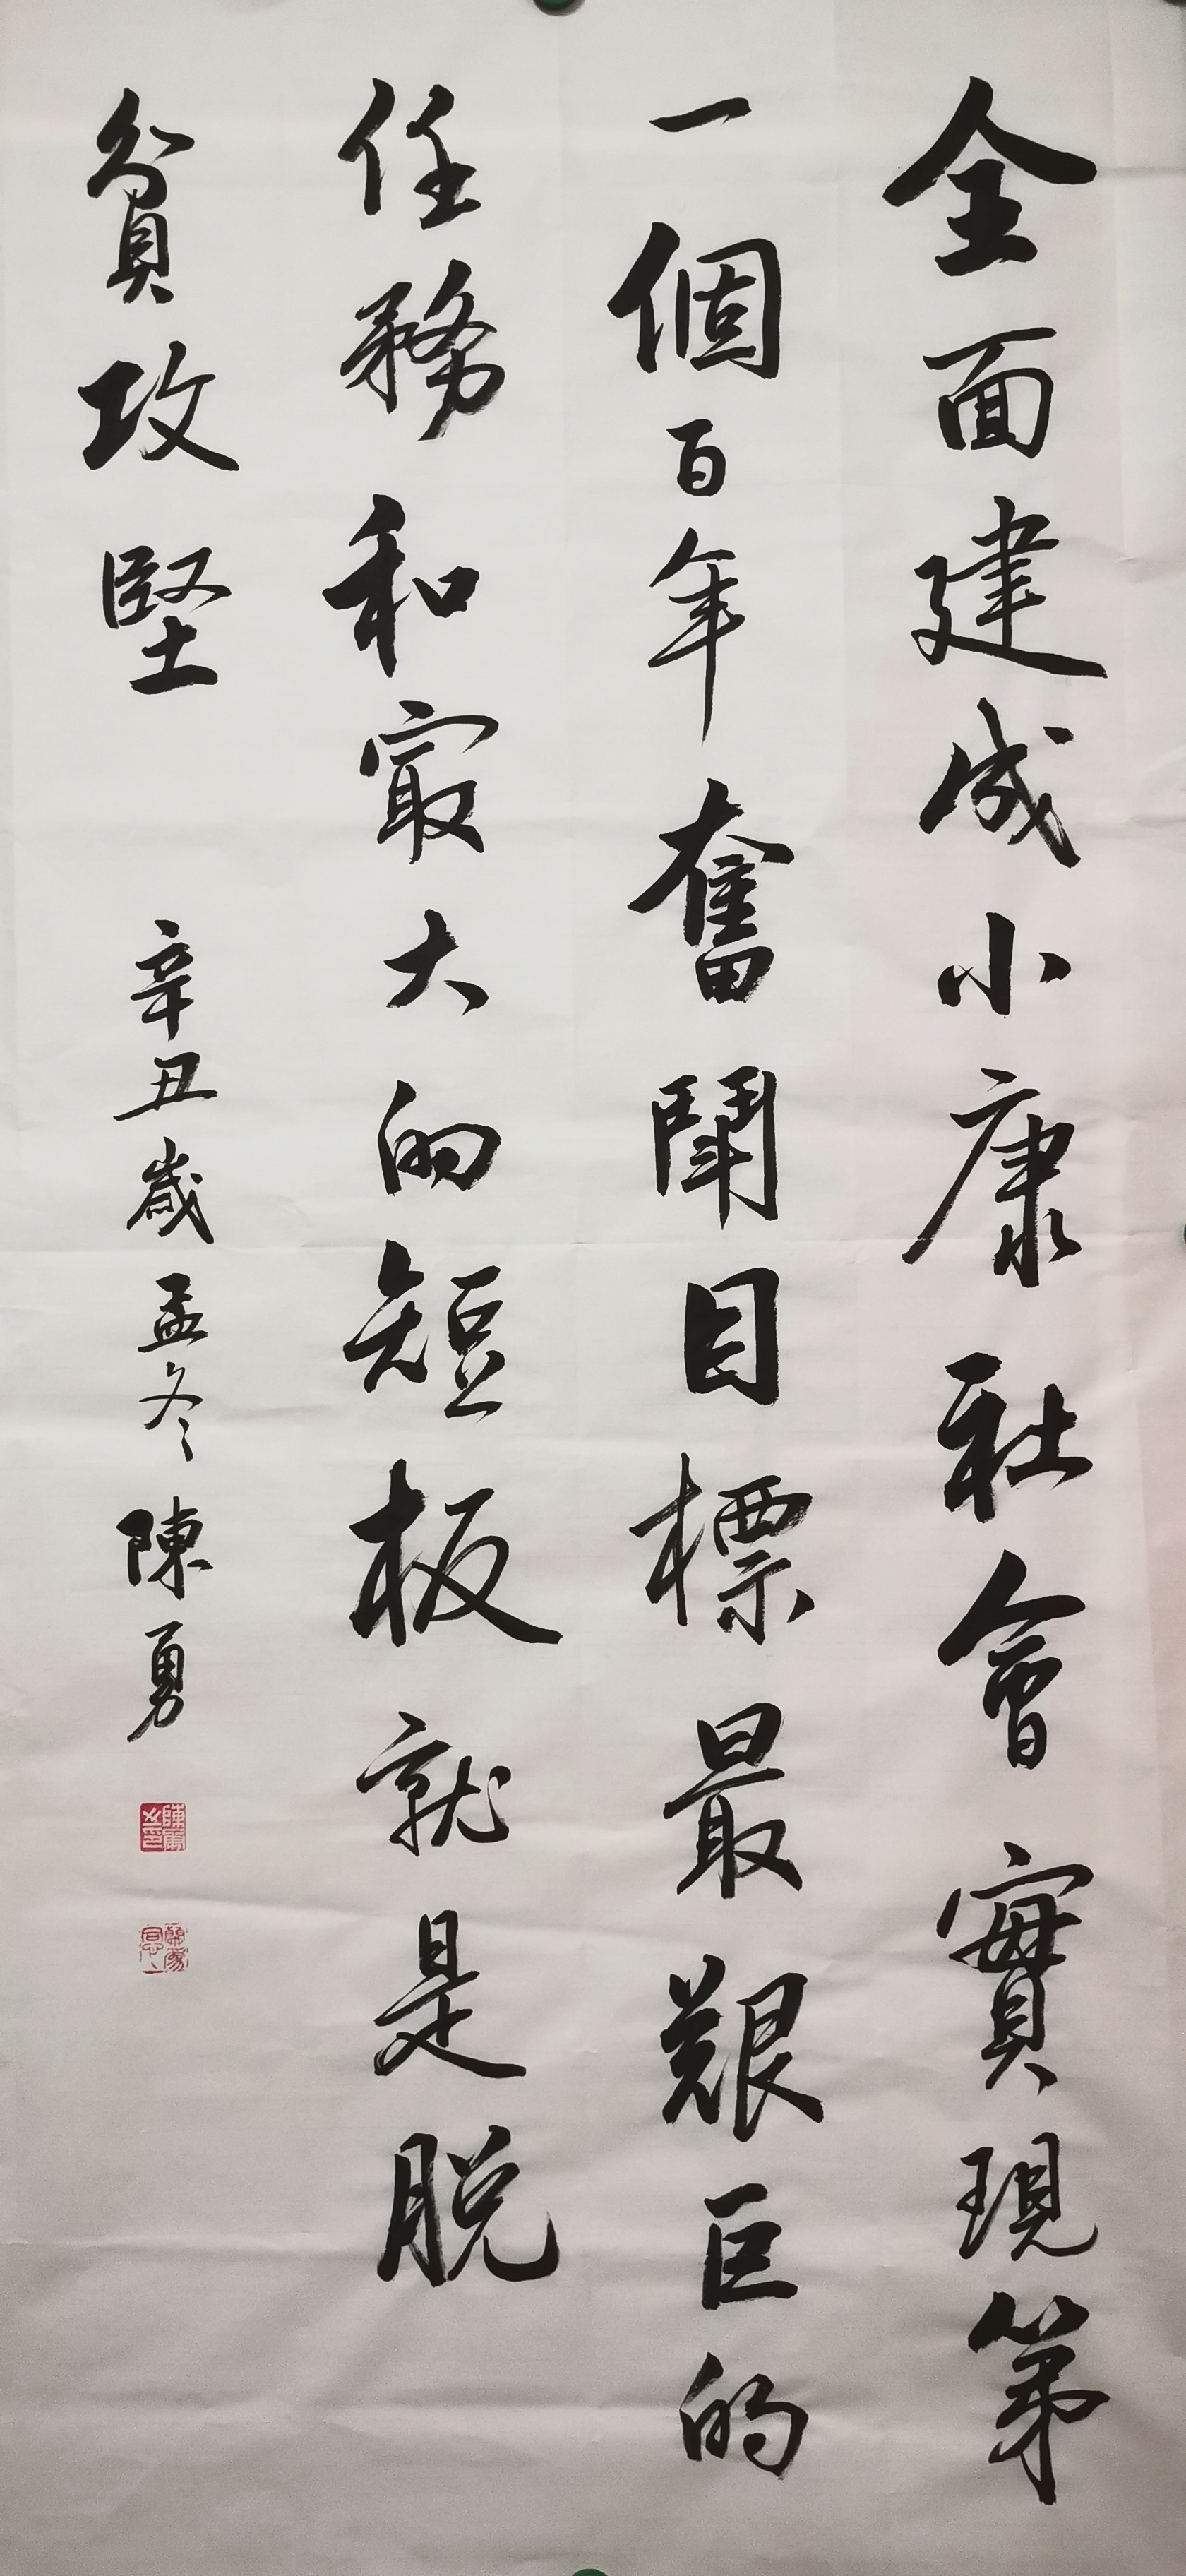 全面建成小康社會實現第
一個百年奮鬪目標最艱巨的
任務和冣大的短板就是脱
貧攻堅 辛丑歲孟冬陳勇